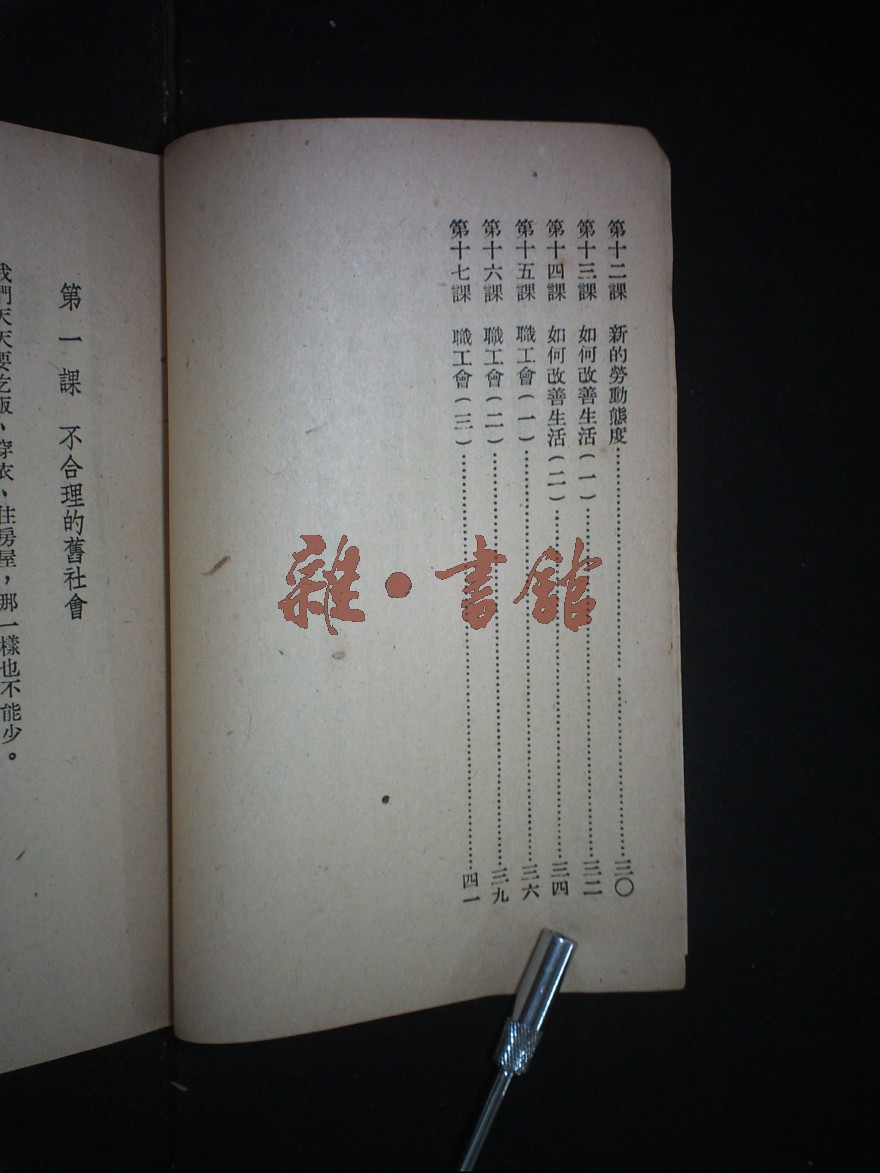 第十二課 新的勞動態度……三〇
第十三課 如何改善生活(一)……三二
第十四課 如何改善生活(二)……三四
第十五課 職工會(一)……三六
第十六課 職工會(二)……三九
第十七課 職工會(三)……四一
第一課 不合理的舊社會
我們天天要吃飯、穿衣、住房屋,那一樣也不能少。
雜•書館